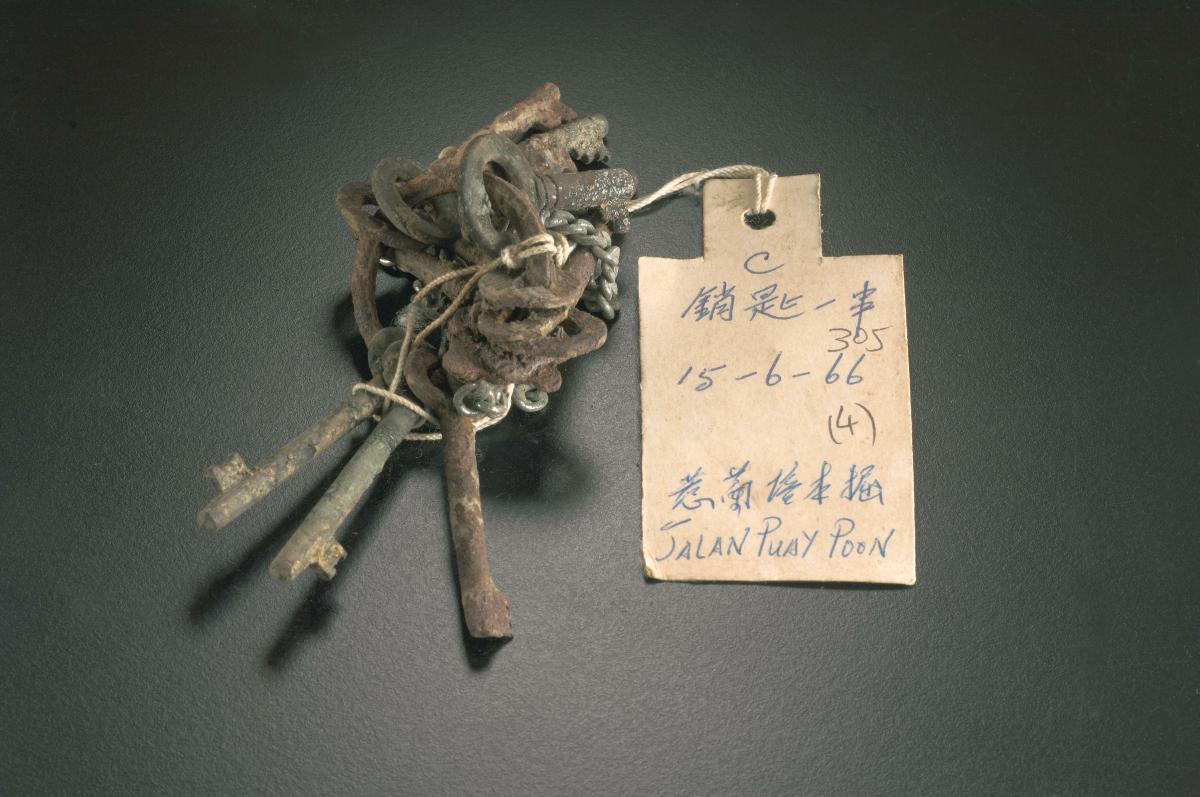 C
銷匙一串
305
15-6-66
(4)
惹蘭培本掘
JALAN PUAY POON